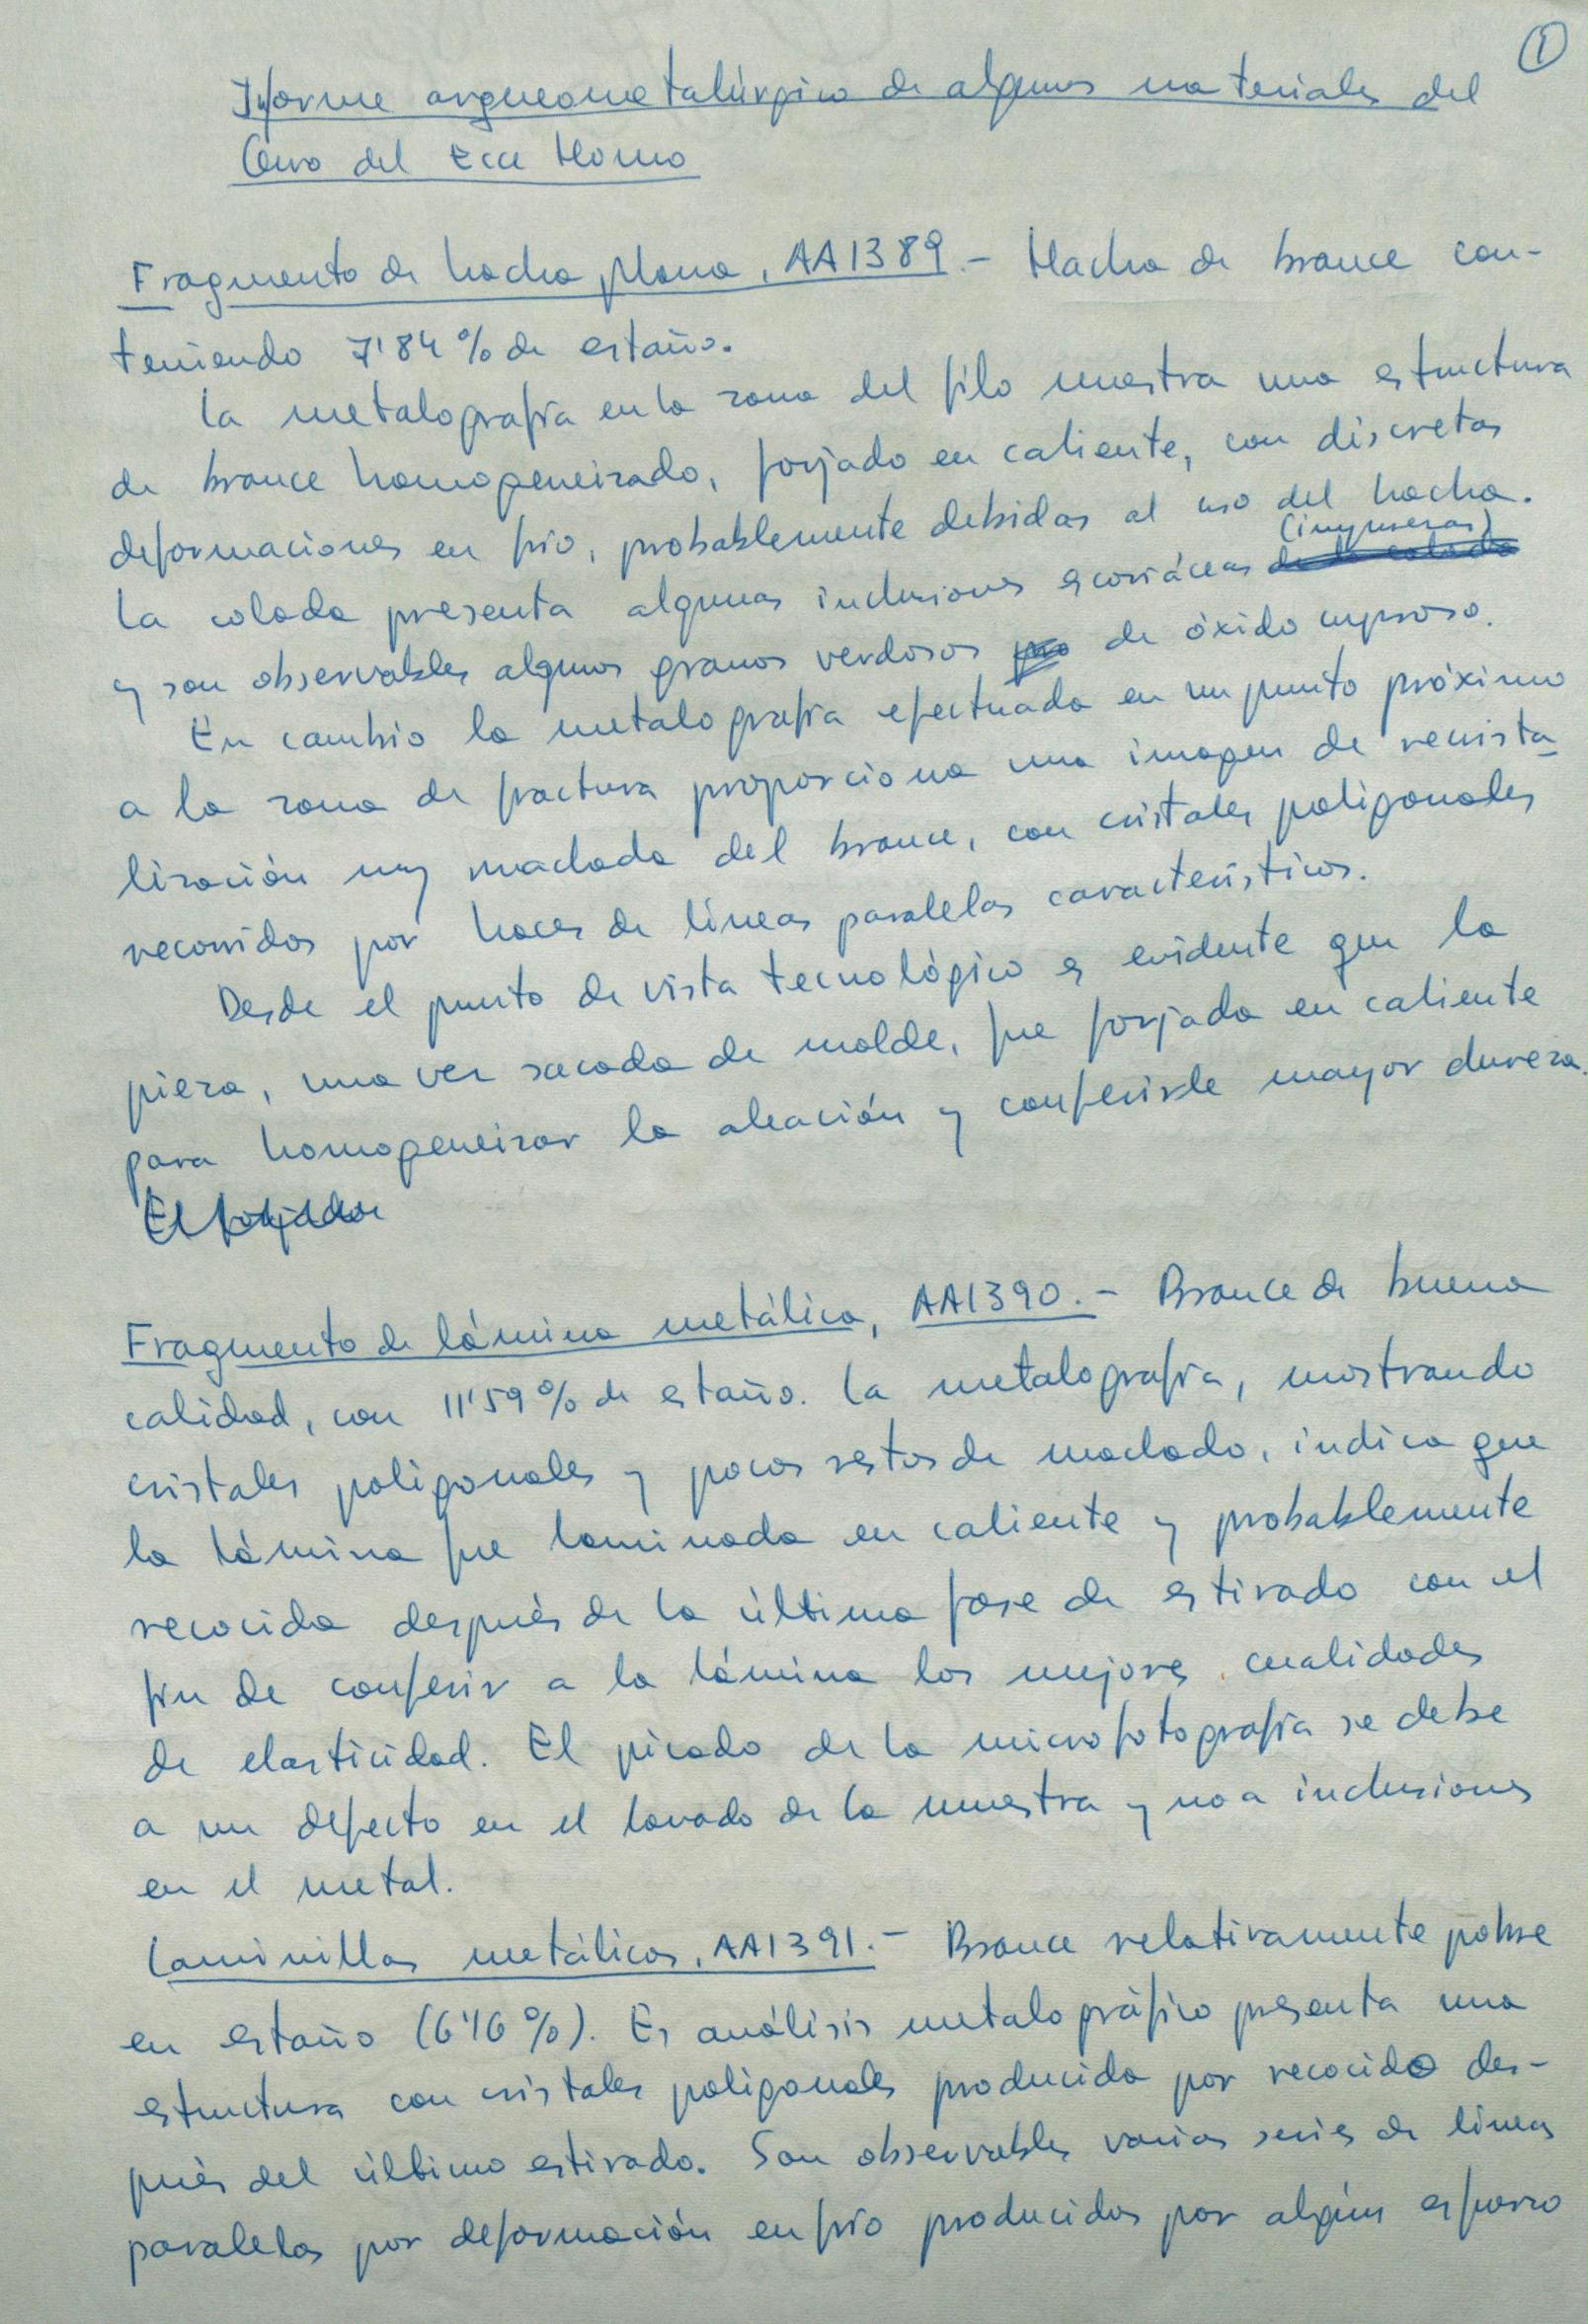 1
Informe arqueometalúrgico de algunos materiales del
Cerro del Ecce Homo
Fragmento de hacha plana, AA1389.- Hacha de bronce con-
teniendo 7'84 % de estaño.
La metalografía en la zona del filo muestra una estructura
de bronce homogeneizado, forjado en caliente, con discretas
deformaciones en frío, probablemente debidas al uso del hacha.
(impurezas)
La colada presenta algunas inclusiones escoriáceas de la colada
y son observables algunos granos verdosos de óxido cuproso.
En cambio la metalografía efectuada en un punto próximo
a la zona de fractura proporciona una imagen de recrista-
lización muy maclada del bronce, con cristales poligonales
recorridos por haces de líneas paralelas característicos.
Desde el punto de vista tecnológico es evidente que la
pieza, una vez sacada de molde, fue forjada en caliente
para homogeneizar la aleación y conferirle mayor dureza.
El forjador
Fragmento de lámina metálica, AA1390.- Bronce de buena
calidad, con 11'59 % de estaño. La metalografía, mostrando
cristales poligonales y pocos restos de maclado, indica que
la lámina fue laminada en caliente y probablemente
recocida después de la última fase de estirado con el
fin de conferir a la lámina las mejores cualidades
de elasticidad. El picado de la microfotografía se debe
a un defecto en el lavado de la muestra y no a inclusiones
en el metal.
Laminillas metálicas, AA1391.- Bronce relativamente pobre
en estaño (6'16 %). Es análisis metalográfico presenta una
estructura con cristales poligonales producida por recocido des-
pués del último estirado. Son observables varias series de líneas
paralelas por deformación en frío producidas por algún esfuerzo